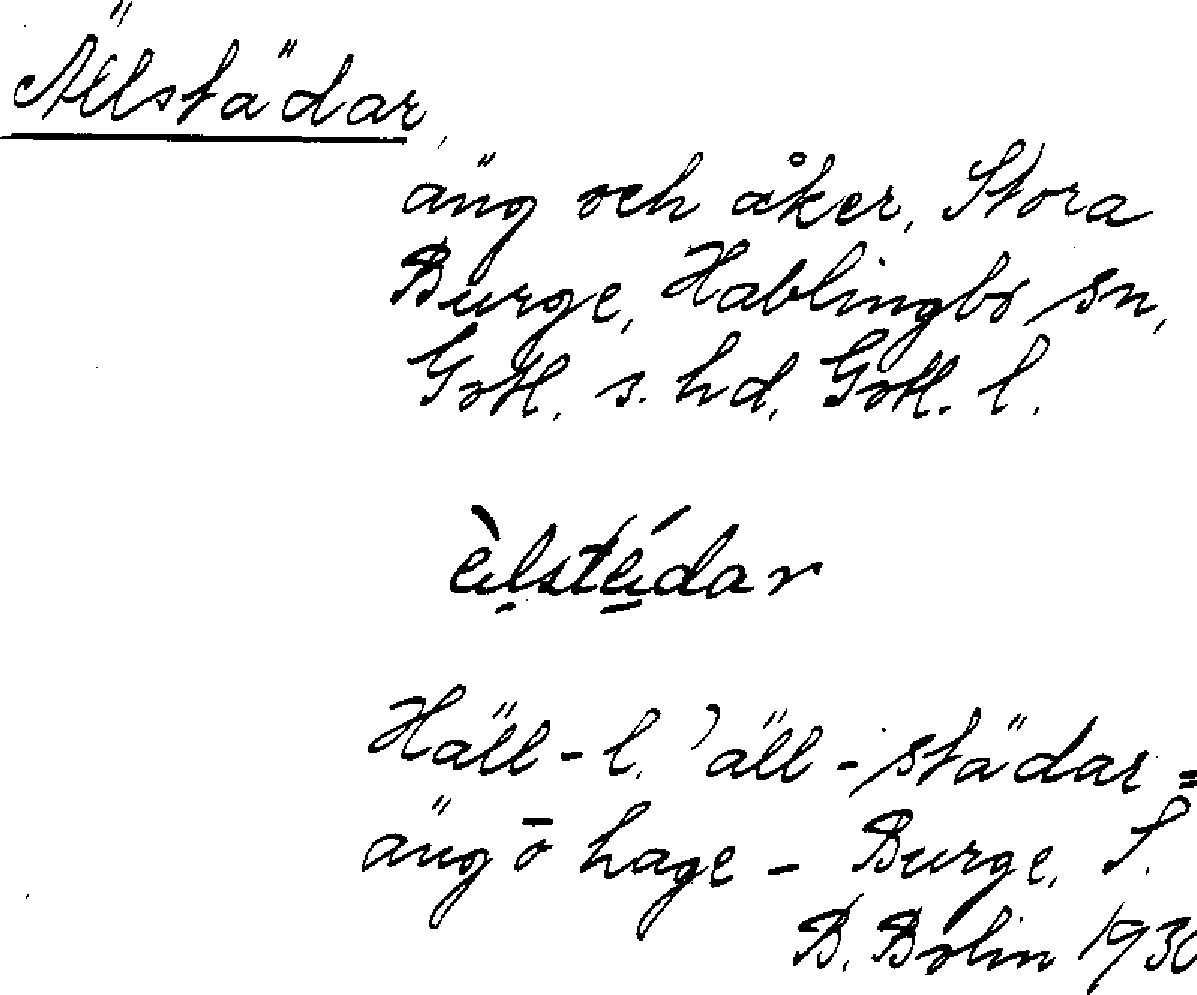 Ällstädar,
äng och åker, Stora
Burge, Hablingbo sn,
Gotl. s. hd, Gotl. l.
èlstédar
Häll- l. 'äll-städar =
äng o hage - Burge, S.
B. Bolin 1930